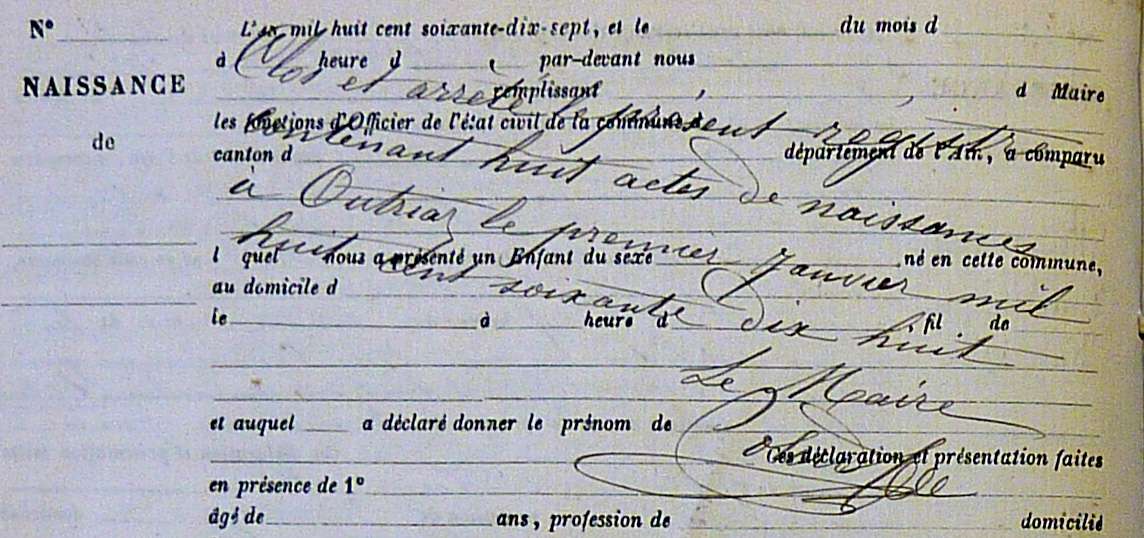 N° L'an mil huit cent soixante-dix-sept, et le du mois d
d heure d , par-devant nous
NAISSANCE remplissant , , d Maire
Clos et arrêté le présent registre
de les fonctions d'Officier de l'état civil de la commune d
contenant huit actes de naissances
canton d département de l'Ain, a comparu
à Outriaz le premier Janvier mil
huit cent soixante dix huit
l quel nous a présenté un Enfant du sexe né en cette commune,
au domicile d
le à heure d , fil de
Le Maire
et auquel a déclaré donner le prénom de
Ces déclaration et présentation faites
en présence de 1°
âgé de ans, profession de domicilié